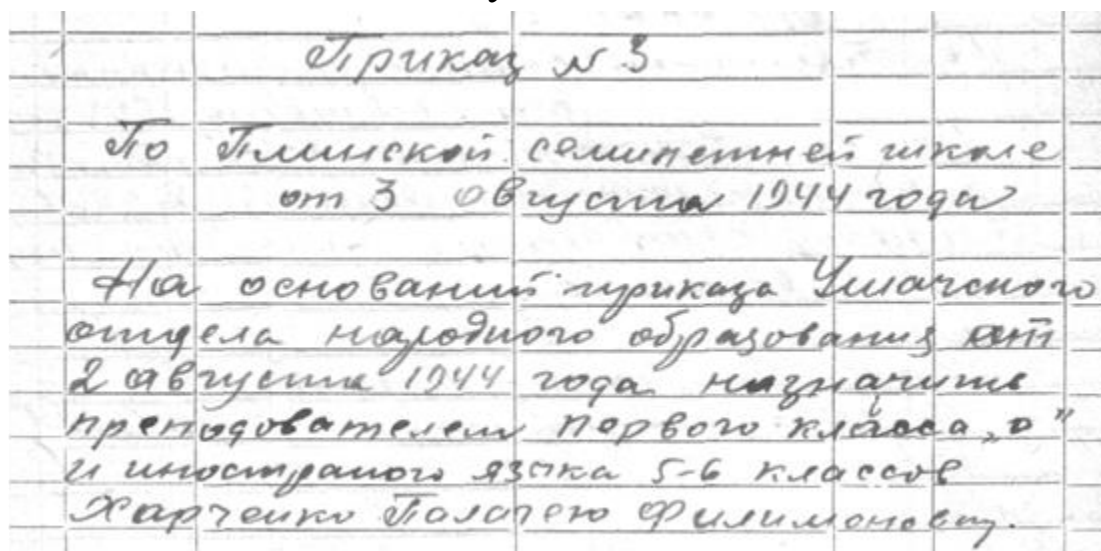 Приказ N 3
По Плинской семилетней школе
от 3 августа 1944 года
На основании приказа Ушачского
отдела народного образования от
2 августа 1944 года назначить
преподователем первого класса „о"
и иностраного языка 5-6 классов
Харченко Палагею Филимоновну.